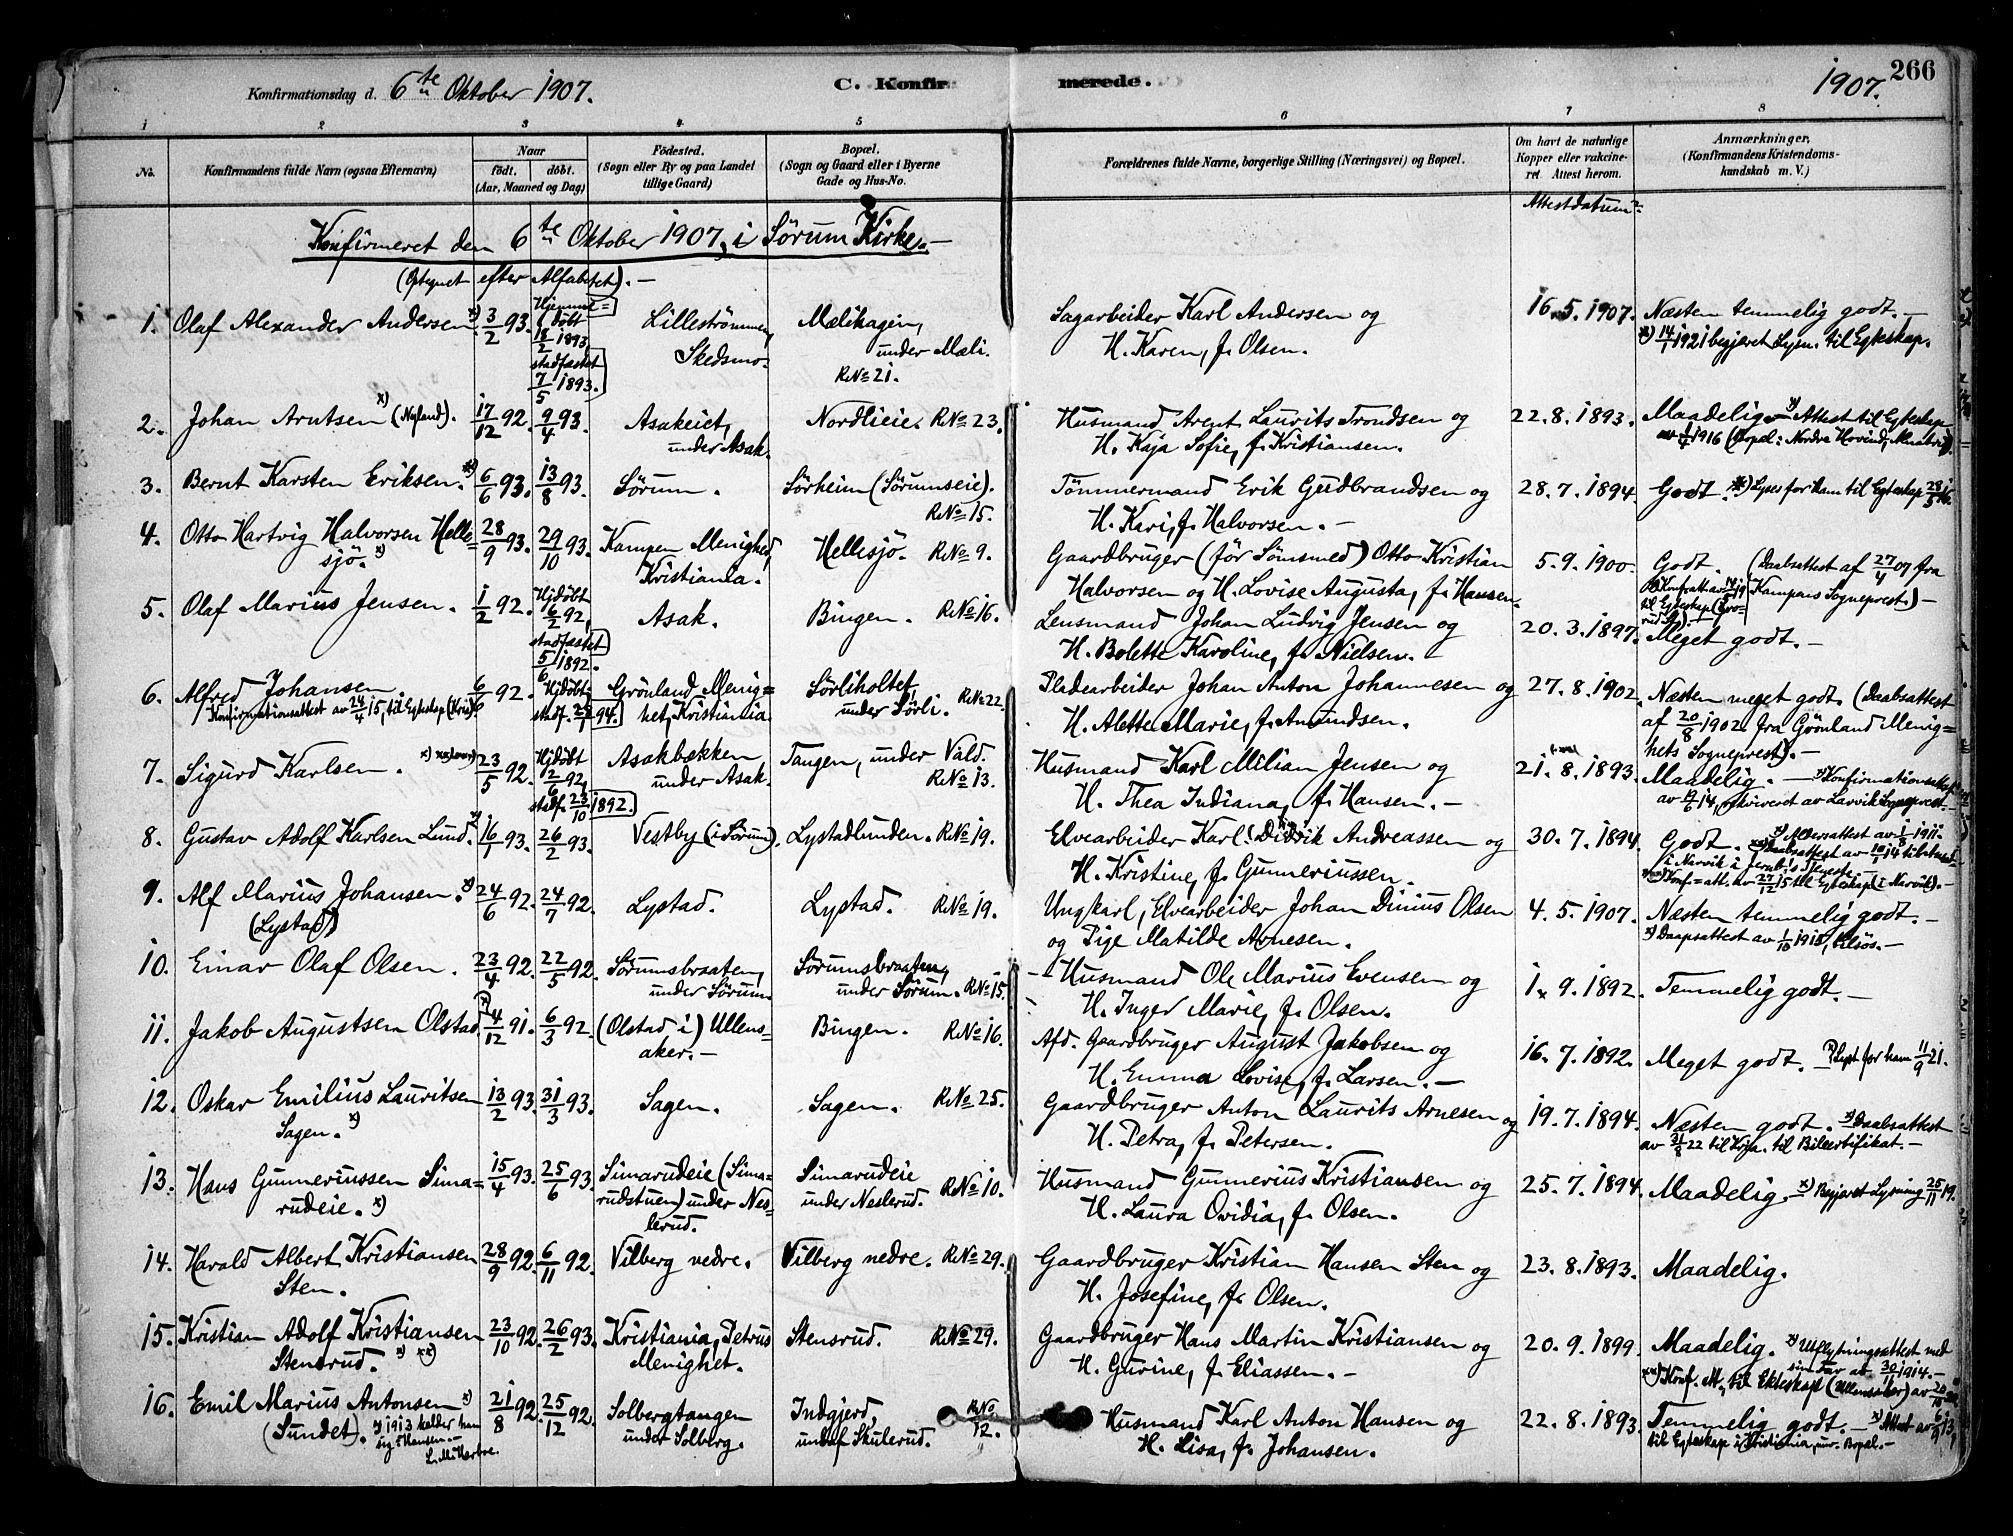 Konfirmationsdag d. 6te Oktober 1907. C. Konfirmerede. 1907. 266
1 2 3 4 5 6 7 8
No. Konfirmandens fulde Navn (ogsaa Efternavn) Naar født. døbt. (Aar, Maaned og Dag) Fødested. (Sogn eller By og paa Landet tillige Gaard) Bopæl. (Sogn og Gaard eller i Byerne Gade og Hus-No. Forældrenes fulde Navne, borgerlige Stilling (Næringsvei) og Bopæl. Om havt de naturlige Kopper eller vakcineret. Attest herom. Anmærkninger, (Konfirmandens Kristendomskundskab m. V.)
Attestdatum:
Konfirmeret den 6te Oktober 1907, i Sørum Kirke.-
(Optegnet efter Alfabetet).-
1. Olaf Alexander Andersen x) 3/2 93. Hjemmedøbt 18/2 1893, stadfæstet 7/5 1893. Lillestrømmen, Skedsmo. Mælihagen, under Mæli. R.No 21. Sagarbeider Karl Andersen og H. Karen, f. Olsen. 16.5.1907. Næsten temmelig godt.-
x) 14/1 1921 begjæret Lysn. til Egteskap.
2. Johan Arntsen x) (Nyland). 17/12 92. 9/4 93. Asakeiet, under Asak. Nordlieie. R.No 23. Husmand Arent Laurits Trondsen og H. Kaja Sofie, f. Kristiansen. 22.8.1893. Maadelig.- x) Attest til Egteskap
1916 (Bopæl: Nordre Hovind,
3. Bernt Karsten Eriksen. x) 6/6 93. 13/8 93. Sørum. Sørheim (Sørumseie). R.No 15. Tømmermand Erik Gudbrandsen og H. Kari, f. Halvorsen.- 28.7.1894. Godt. x) Lyses for ham til Egteskap 28/5 16.
4. Otto Hartvig Halvorsen Hellesjø. x) 28/9 93. 29/10 93. Kampen Menighed, Kristiania. Hellesjø. R.No 9. Gaardbruger (før Sømsmed) Otto Kristian Halvorsen og H. Lovise Augusta, f. Hansen. 5.9.1900. Godt. (Daabsattest af 27/4 07 fra Kampens Sogneprest.)-
5. Olaf Marius Jensen. 1/2 92. Hjdøbt 16/2 92, stadfæstet 5/6 1892. Asak. Bingen. R.No 16. Lensmand Johan Ludvig Jensen og H. Bolette Karoline, f. Nielsen.- 20.3.1897. Meget godt.-
6. Alfred Johansen. 6/6 92. Hjdøbt stadf. 94. Grønland Menighet, Kristiania. Sørliholtet under Sørli. R.No 22. Pladearbeider Johan Anton Johannesen og H. Alette Marie, f. Amundsen. 27.8.1902. Næsten meget godt. (Daabsattest af 20/8 1902 fra Grønland Menighets Sogneprest).-
Konfirmationsattest av 24/4 15, til Egteskap (Kria)
7. Sigurd Karlsen. x) 23/5 92. Hjdøbt 2/6 92, stadf. 23/10 1892. Asakbækken under Asak. Tangen, under Vald. R.No 13. Husmand Karl Milian Jensen og H. Thea Indiana, f. Hansen.- 21.8.1893. Maadelig.- x) Konfirmationsattest
av 19/6 14, av Larvik Sogneprest.
8. Gustav Adolf Karlsen Lund. x) 16/1 93. 26/2 93. Vestby (i Sørum). Lystadlunden. R.No 19. Elvearbeider Karl Didrik Andreassen og H. Kristine, f. Gunneriussen. 30.7.1894. Godt. x) Aldersattest av 1911.
9. Alf Marius Johansen. x) (Lystad) 24/6 92. 24/7 92. Lystad. Lystad. R.No 19. Ungkarl, Elvearbeider Johan Dinius Olsen og Pige Matilde Arnesen. 4.5.1907. Næsten temmelig godt.-
x) Daapsattest av 1/10 1918, tilsøs.-
10. Einar Olaf Olsen. 23/4 92. 22/5 92. Sørumsbraaten, under Sørum. Sørumsbraaten, under Sørum. R.No 15. Husmand Ole Marius Evensen og H. Inger Marie, f. Olsen. 1.9.1892. Temmelig godt.-
11. Jakob Augustsen Olstad. x) 4/12 91. 6/3 92. (Olstad i) Ullensaker.- Bingen. R.No 16. Afd. Gaardbruger August Jakobsen og H. Emma Lovise, f. Larsen.- 16.7.1892. Meget godt. x) Lyst for ham 11/9 21.
12. Oskar Emilius Lauritsen Sagen. x) 13/2 93. 31/3 93. Sagen. Sagen. R.No 25. Gaardbruger Anton Laurits Arnesen og H. Petra, f. Petersen. 19.7.1894. Næsten godt. x) Daabsattest
av 31/8 22 til Kria. til Bilcertifikat.-
13. Hans Gunneriussen Simarudeie. x) 15/4 93. 25/6 93. Simarudeie (Simarudstuen) under Neslerud. Simarudeie under Neslerud. R.No 10. Husmand Gunnerius Kristiansen og H. Laura Ovidia, f. Olsen. 25.7.1894. Maadelig. x) Begjæret Lysning 25/11 19.
14. Harald Albert Kristiansen Sten. 28/9 92. 6/11 92. Vilberg nedre. Vilberg nedre. R.No 29. Gaardbruger Kristian Hansen Sten og H. Josefine, f. Olsen. 23.8.1893. Maadelig.
15. Kristian Adolf Kristiansen Stensrud. x) xx) 23/10 92. 26/2 93. Kristiania, Petrus Menighet. Stensrud. R.No 29. Gaardbruger Hans Martin Kristiansen og H. Gurine, f. Eliassen.- 20.9.1899. Maadelig. x) Utflytningsattest med
sin Far av 30/11 1914.-
xx) Konf. att. til Ekteskap (Ullensaker) av
16. Emil Marius Antonsen x) (Sundet). x) 1913 kalder han sig Hansen.- 21/8 92. 25/12 92. Solbergtangen under Solberg. Indgjerd, under Skulerud. R.No 12. Husmand Karl Anton Hansen og H. Lisa, f. Johansen. 22.8.1893. Temmelig godt.- x) Attest av 6/9 13,
til Egteskap i Kristiania, Bopæl.-